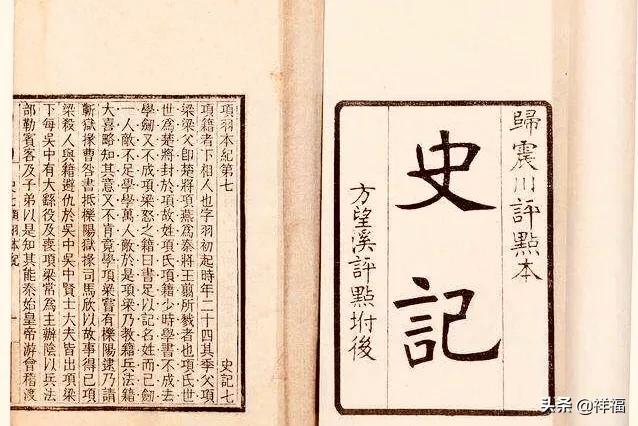 歸震川評點本
史記
方望溪評點坿後
項羽本紀第七 史記七
項籍者下相人也字羽初起時年二十四其季父項
梁梁父卽楚將項燕爲秦將王翦所戮者也項氏世
世爲楚將封於項故姓項氏項籍少時學書不成去
學劍又不成項梁怒之籍曰書足以記名姓而已劍
一人敵不足學學萬人敵於是項梁乃教籍兵法籍
大喜略知其意又不肯竟學項梁嘗有櫟陽逮乃請
蘄獄掾曹咎書抵櫟陽獄掾司馬欣以故事得已項
梁殺人與籍避仇於吳中吳中賢士大夫皆出項梁
下每吳中有大繇役及喪項梁常爲主辦陰以兵法
部勒賓客及子弟以是知其能秦始皇帝游會稽渡
头条 @祥福